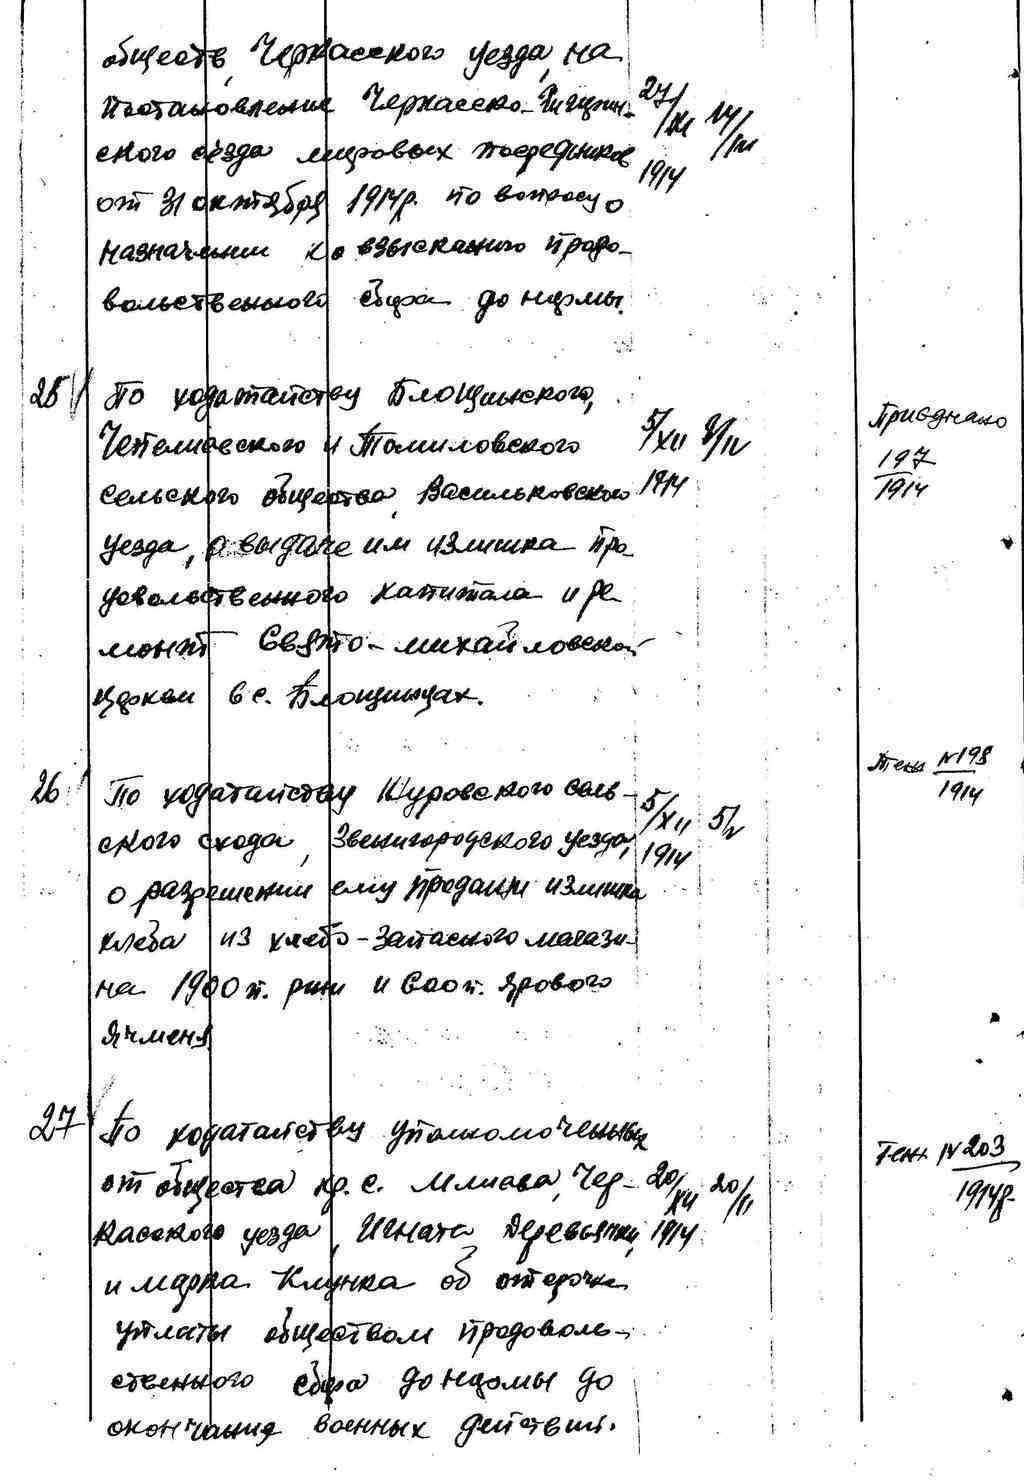 обществ, Черкасского уезда, на
постановление Черкасско-Чигирин-
ского съезда мировых посредников
от 31 октября 1914р. по вопросу о
назначении ко взысканию продо-
вольственного сбора до нормы.
27/XI 1914
14/III
25 По ходатайству Блощинского,
Чепелиевского и Томиловского
сельского общества, Васильковского
уезда, о выдаче им излишка про
довольственного капитала и ре
монт Свято-михайловской
церкви в с. Блощинцах.
5/XII 1914
8/IV
Присоднано
197
1914
26 По ходатайству Шуровского соль-
ского схода, Звенигородского уезда,
о разрешении ему продажи излишка
хлеба из хлебо-запасного магази-
на 1900 п. ржи и 600 п. ярового
ячменя
5/XII 1914
5/V
Тенж №198
1914
27 По ходатайству уполномоченных
от общества кр. с. Млиева, Чер-
касского уезда, Игната Деревянки,
и марка Клунка об отсрочке
уплаты обществом продоволь-
ственного сбора до нормы до
окончания военных действий.
20/XII 1914
20/II
Тенж №203
1914р.